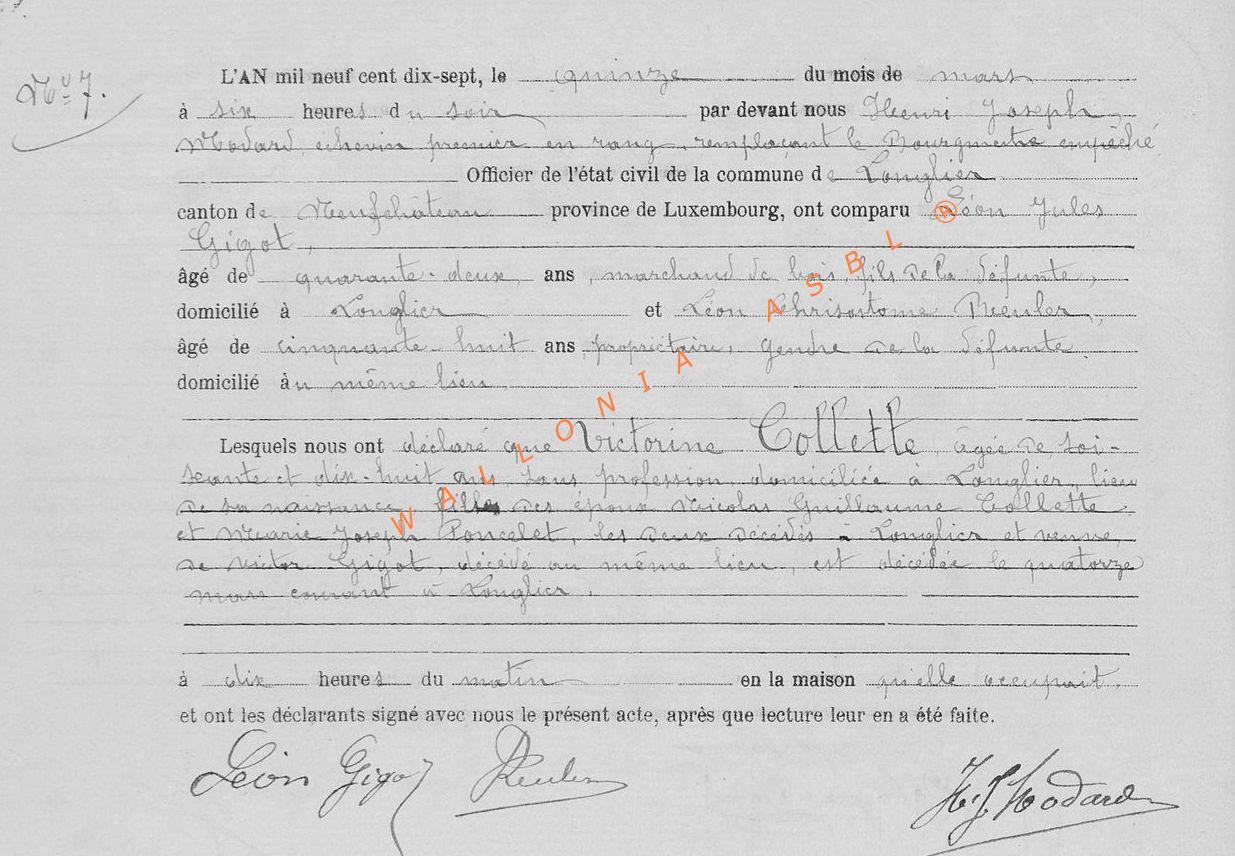 Nº 7.
L'AN mil neuf cent dix-sept, le quinze du mois de mars
à six heures du soir par devant nous Henri Joseph
Modard, échevin premier en rang, remplaçant le Bourgmestre empêché,
Officier de l'état civil de la commune de Longlier
canton de Neufchâteau province de Luxembourg, ont comparu Léon Jules
Gigot,
âgé de quarante-deux ans, marchand de bois, fils de la défunte,
domicilié à Longlier et Léon Chrisostome Reuler,
âgé de cinquante-huit ans, propriétaire, gendre de la défunte
domicilié au même lieu,
Lesquels nous ont déclaré que Victorine Collette, âgée de soi-
xante et dix-huit ans, sans profession, domiciliée à Longlier, lieu
de sa naissance, fille des époux Nicolas Guillaume Collette
et Marie Joseph Poncelet, les deux décédés à Longlier et veuve,
de Victor Gigot, décédé au même lieu, est décédée le quatorze
mars courant à Longlier.
à dix heures du matin en la maison qu'elle occupait.
et ont les déclarants signé avec nous le présent acte, après que lecture leur en a été faite.
Léon Gigot Reuler H. J. Modard
WALLONIA ASBL ®